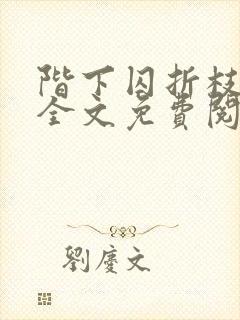 階下囚折枝
全文免費閱
劉慶文